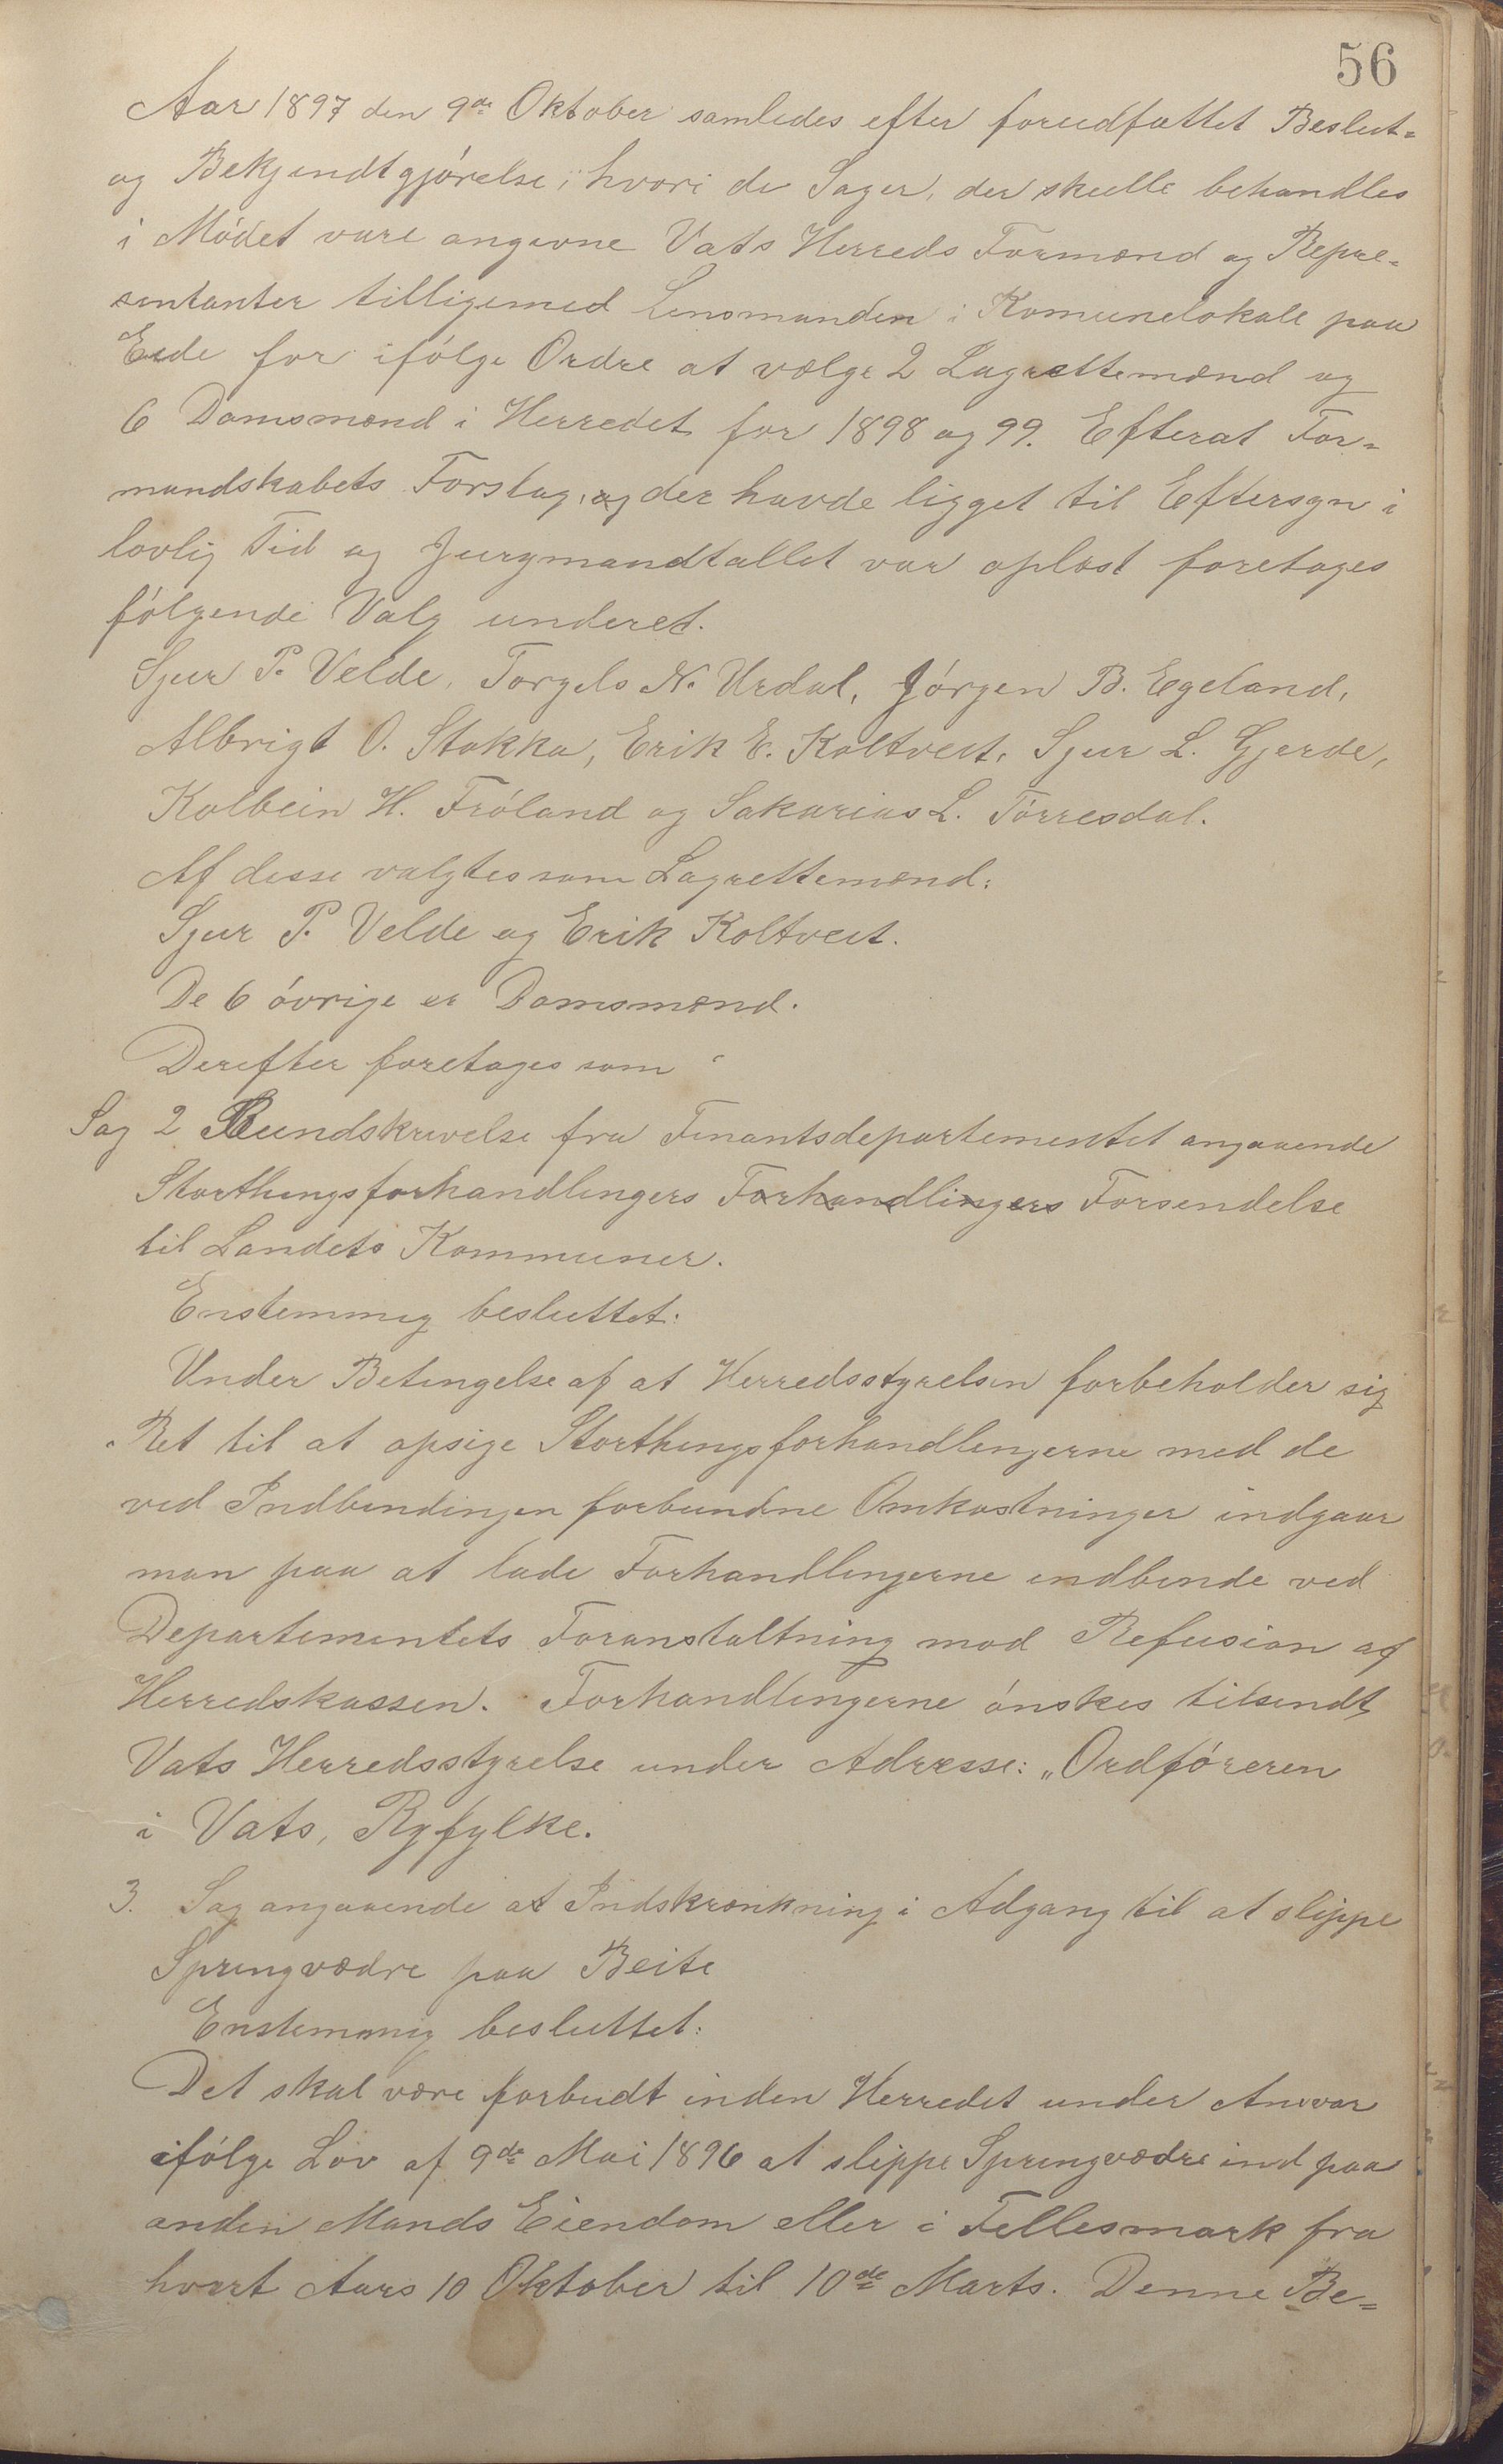 56
Aar 1897 den 9de Oktober samledes efter forudfattet Beslut=
og Bekjendtgjórelse, hvori de Sager, der skulle behandles
i Módet vare angivne Vats Herreds Formænd og Repre-
sentanter tilligemed Lensmanden i Komunelokale paa
Eide for ifólge Ordre at vælge 2 Lagrettemænd og
6 Domsmænd i Herredet for 1898 og 99. Efterat For=
mandskabets Forslag, og der havde ligget til Eftersyn i
lovlig Tid og Jurymandtallet var oplæst foretages
fólgende Valg underet.
Sjur P. Velde, Torgels N. Urdal, Jórgen B. Egeland,
Albrigt O. Stakka, Erik E. Koltveit, Sjur L. Gjerde,
Kolbein H. Fróland og Sakarias L. Tórresdal.
Af disse valgtes som Lagrettemænd:
Sjur P. Velde og Erik Koltveit.
De 6 óvrige er Domsmænd.
Derefter foretages som
Sag 2 Rundskrivelse fra Finantsdepartementet angaaende
Storthingsforhandlingers Forhandlingers Forsendelse
til Landets Kommuner.
Enstemmig besluttet:
Under Betingelse af at Herredsstyrelsen forbeholder sig
Ret til at opsige Storthingsforhandlingerne med de
ved Indbindingen forbundne Omkostninger indgaar
man paa at lade Forhandlingerne indbinde ved
Departementets Foranstaltning mod Refusion af
Herredskassen. Forhandlingerne ónskes tilsendt
Vats Herredsstyrelse under Adresse: „Ordfóreren
i Vats, Ryfylke.
3. Sag angaaende at Indskrænkning i Adgang til at slippe
Springvædre paa Beite
Enstemmig besluttet:
Det skal være forbudt inden Herredet under Ansvar
ifólge Lov af 9de Mai 1896 at slippe Springvædre ind paa
anden Mands Eiendom eller i Fellesmark fra
hvert Aars 10 Oktober til 10de Marts. Denne Be=